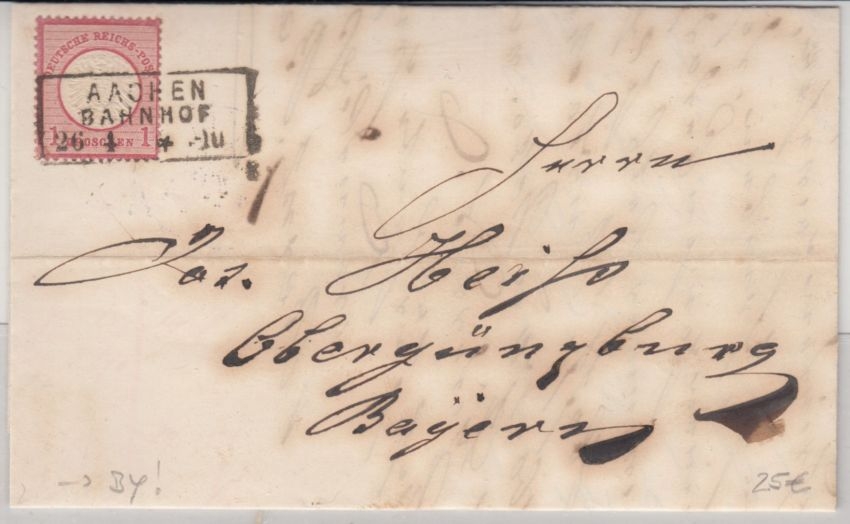 DEUTSCHE REICHS-POST
AACHEN
BAHNHOF
26 4 * -10
1 GROSCHEN 1
Herrn
Jos.
Obergünzburg
Bayern
→ BY!
25€